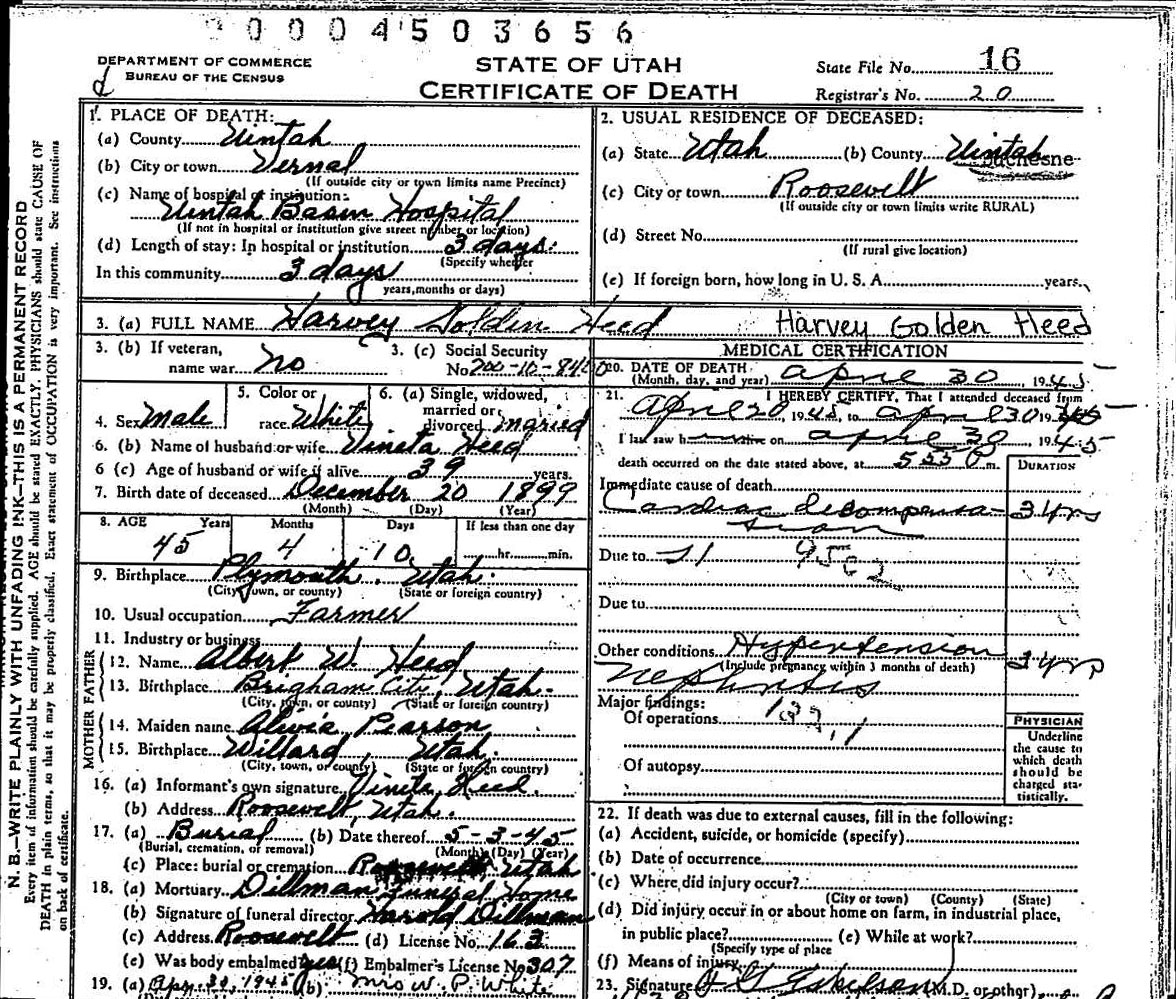 0004503656
DEPARTMENT OF COMMERCE
BUREAU OF THE CENSUS
STATE OF UTAH
CERTIFICATE OF DEATH
State File No. 16
Registrar's No. 20
N. B.—WRITE PLAINLY WITH UNFADING INK—THIS IS A PERMANENT RECORD
Every item of information should be carefully supplied. AGE should be stated EXACTLY. PHYSICIANS should state CAUSE OF
DEATH in plain terms, so that it may be properly classified. Exact statement of OCCUPATION is very important. See instructions
on back of certificate.
1. PLACE OF DEATH:
(a) County Uintah
(b) City or town Vernal
(If outside city or town limits name Precinct)
(c) Name of hospital or institution:
Uintah Basin Hospital
(If not in hospital or institution give street number or location)
(d) Length of stay: In hospital or institution 3 days.
(Specify whether
In this community 3 days
years, months or days)
2. USUAL RESIDENCE OF DECEASED:
(a) State Utah (b) County Uintah Duchesne
(c) City or town Roosevelt
(If outside city or town limits write RURAL)
(d) Street No.
(If rural give location)
(e) If foreign born, how long in U. S. A. years.
3. (a) FULL NAME Harvey Goldin Heed Harvey Golden Heed
3. (b) If veteran,
name war no
3. (c) Social Security
No.
4. Sex Male
5. Color or
race White
6. (a) Single, widowed,
married or
divorced married
6. (b) Name of husband or wife Vineta Heed
6 (c) Age of husband or wife if alive 39 years.
7. Birth date of deceased December 20 1899
(Month) (Day) (Year)
8. AGE Years Months Days If less than one day
45 4 10 hr. min.
9. Birthplace Plymouth, Utah.
(City, town, or county) (State or foreign country)
10. Usual occupation Farmer
11. Industry or business
FATHER
12. Name Albert W. Heed
13. Birthplace Brigham City, Utah.
(City, town, or county) (State or foreign country)
MOTHER
14. Maiden name Alivia Pearson
15. Birthplace Willard, Utah.
(City, town, or county) (State or foreign country)
16. (a) Informant's own signature Heed.
(b) Address Roosevelt, Utah.
17. (a) Burial (b) Date thereof 5-3-45
(Burial, cremation, or removal) (Month) (Day) (Year)
(c) Place: burial or cremation Roosevelt, Utah
18. (a) Mortuary Dillman Funeral Home
(b) Signature of funeral director Harold Dillman
(c) Address Roosevelt (d) License No. 163
(e) Was body embalmed yes (f) Embalmer's License No. 307
19. (a) Apr. 30, 1945 (b) Mrs W. P. White
MEDICAL CERTIFICATION
20. DATE OF DEATH
(Month, day, and year) April 30, 1945
21. I HEREBY CERTIFY, That I attended deceased from
April 20, 1945, to April 30 1945
I last saw h alive on April 30, 1945
death occurred on the date stated above, at m.
DURATION
Immediate cause of death
Cardiac decompensa- 3 yrs
tion
Due to
Due to
Other conditions Hypertension 3 yrs
(Include pregnancy within 3 months of death)
Nephritis
Major findings:
Of operations
Of autopsy
PHYSICIAN
Underline
the cause to
which death
should be
charged sta-
tistically.
22. If death was due to external causes, fill in the following:
(a) Accident, suicide, or homicide (specify)
(b) Date of occurrence
(c) Where did injury occur?
(City or town) (County) (State)
(d) Did injury occur in or about home on farm, in industrial place,
in public place? (e) While at work?
(Specify type of place
(f) Means of injury
23. Signature (M.D. or other)